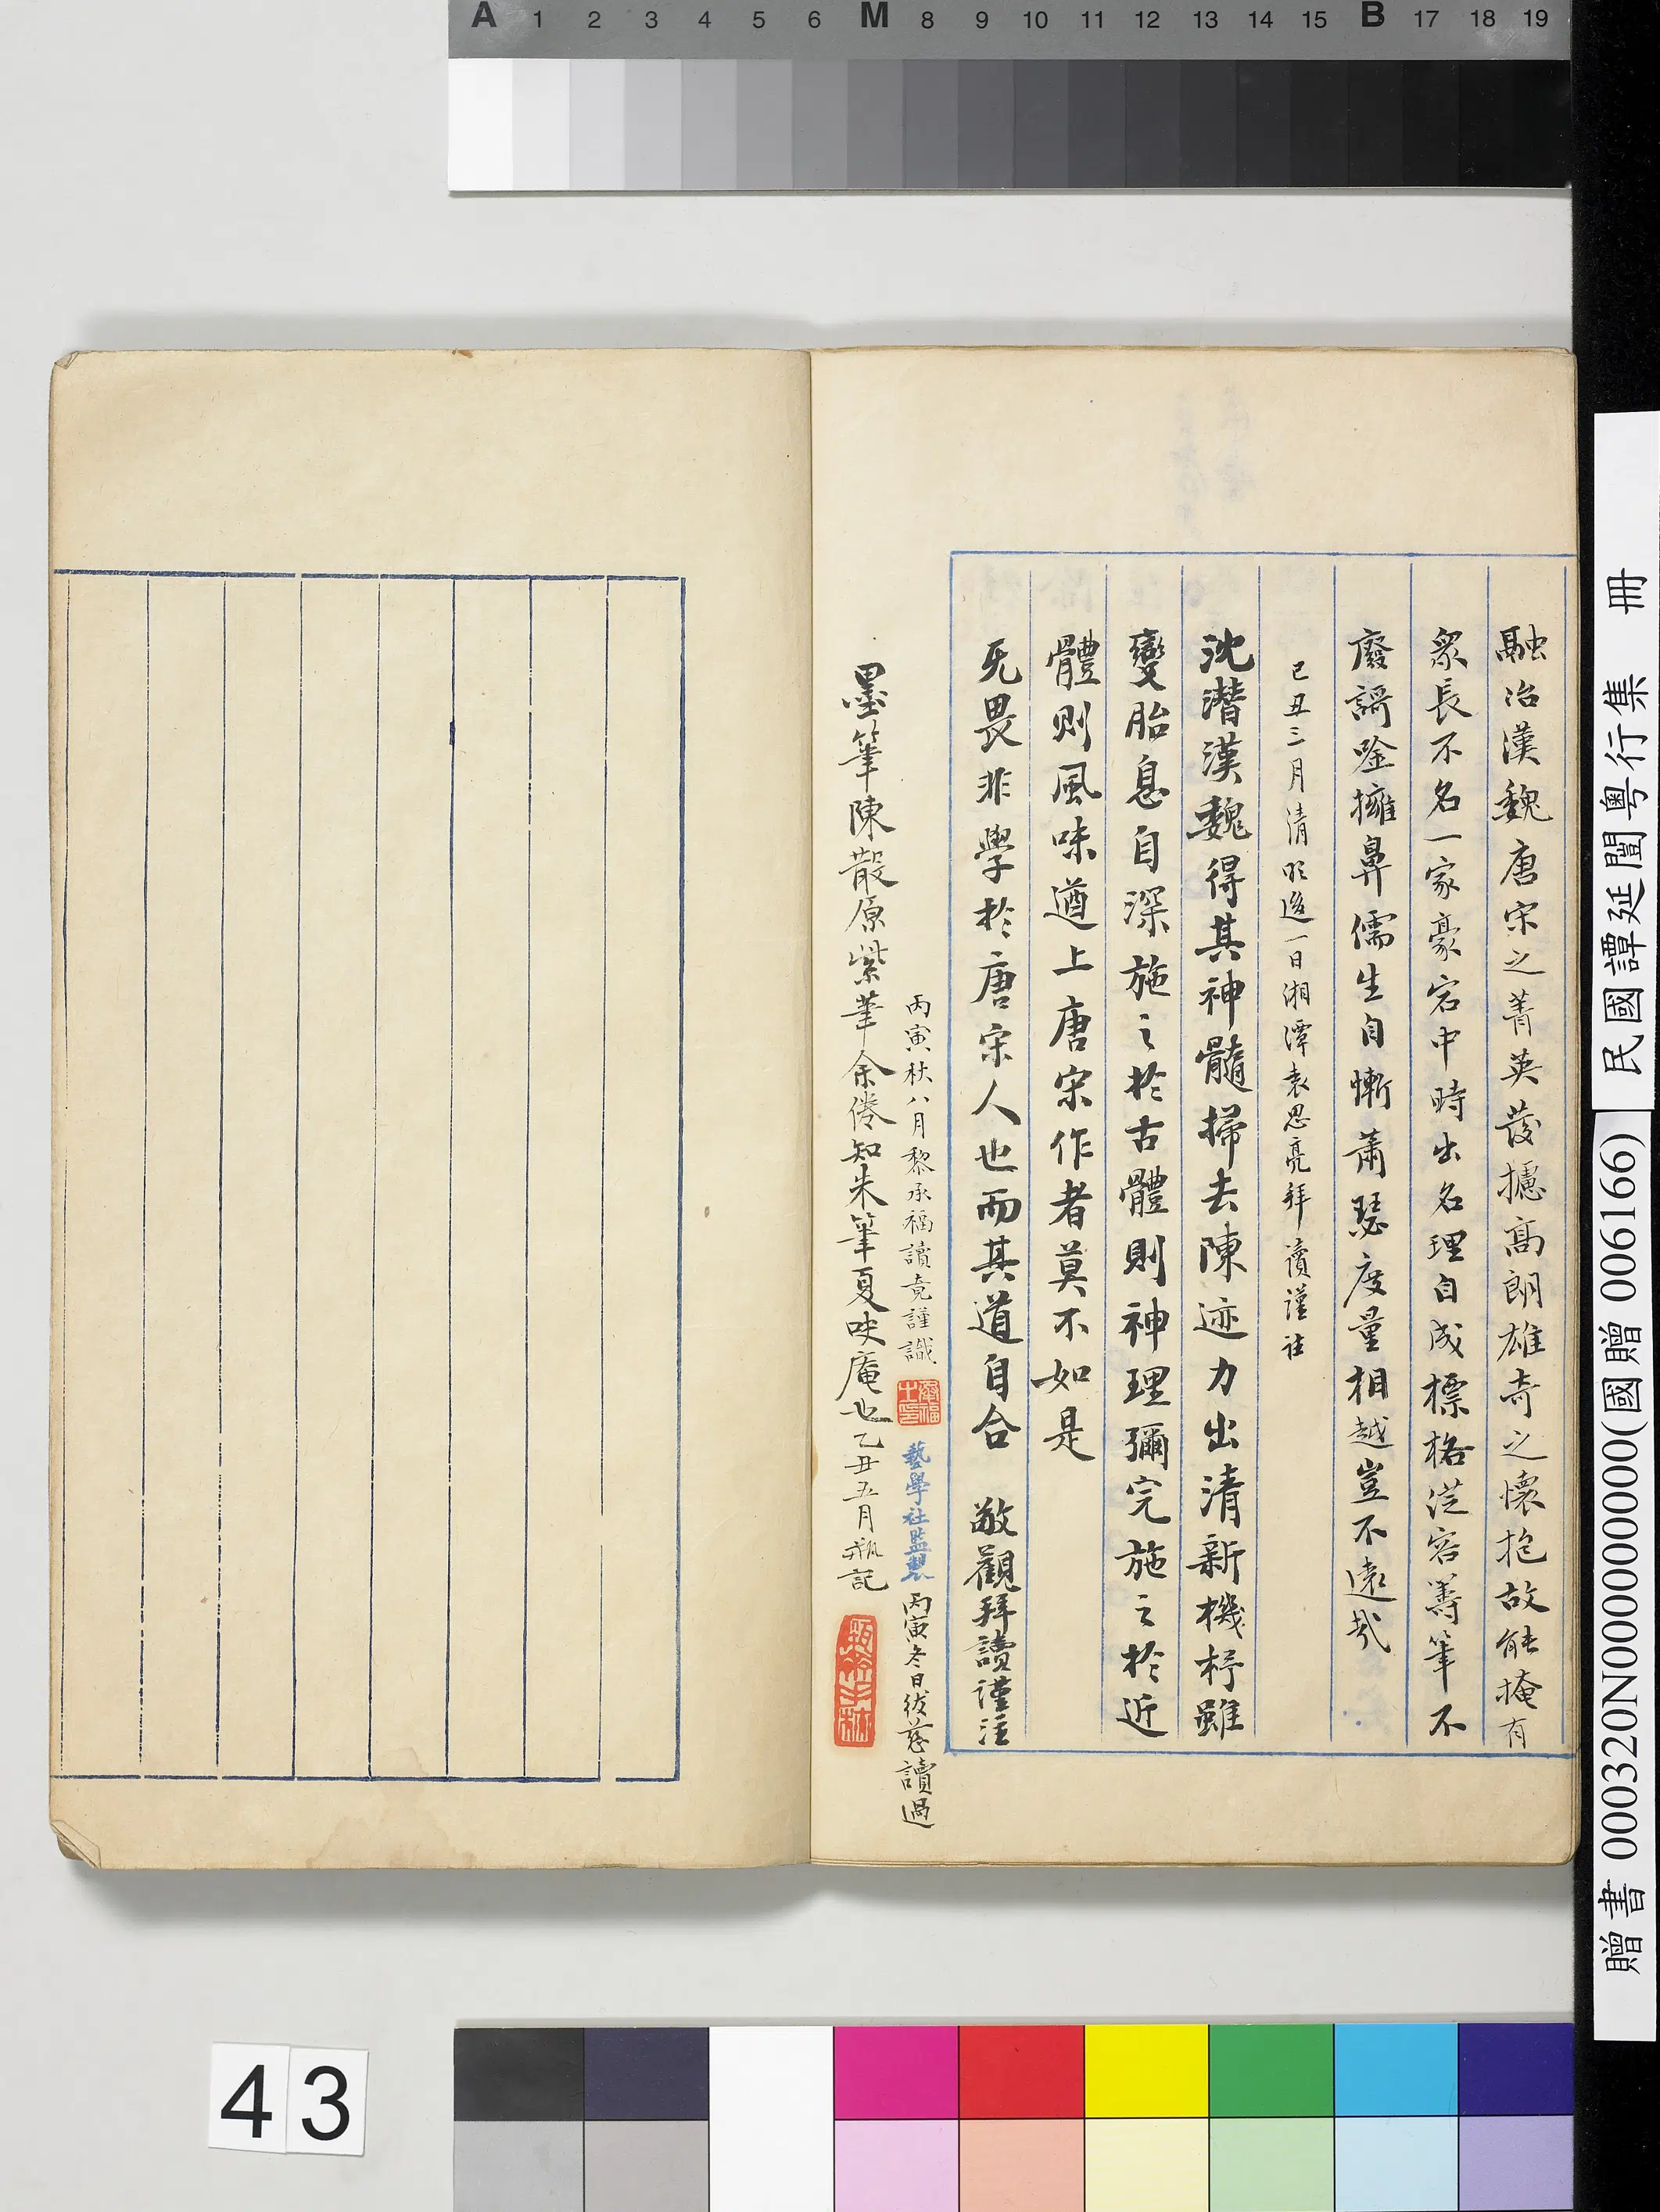 A 1 2 3 4 5 6 M 8 9 10 11 12 13 14 15 B 17 18 19
融冶漢魏唐宋之菁英發攄高朗雄奇之懷抱故能掩有
眾長不名一家豪宕中時出名理自成標格從容籌筆不
廢謌唫擁鼻儒生自慚蕭瑟度量相越豈不遠哉
己丑三月清明後一日湘潭袁思亮拜讀謹註
沈潛漢魏得其神髓掃去陳迹力出清新機杼雖
變胎息自深施之於古體則神理彌完施之於近
體則風味遒上唐宋作者莫不如是
旡畏非學於唐宋人也而其道自合 敬觀拜讀謹注
丙寅秋八月黎承福讀竟謹識
藝學社監製
丙寅冬日 讀過
墨筆陳散原紫筆余倦知朱筆夏吷庵也乙丑五月瓶記
民國譚延闓粵行集 冊
贈書 000320N000000000(國贈 006166)
43